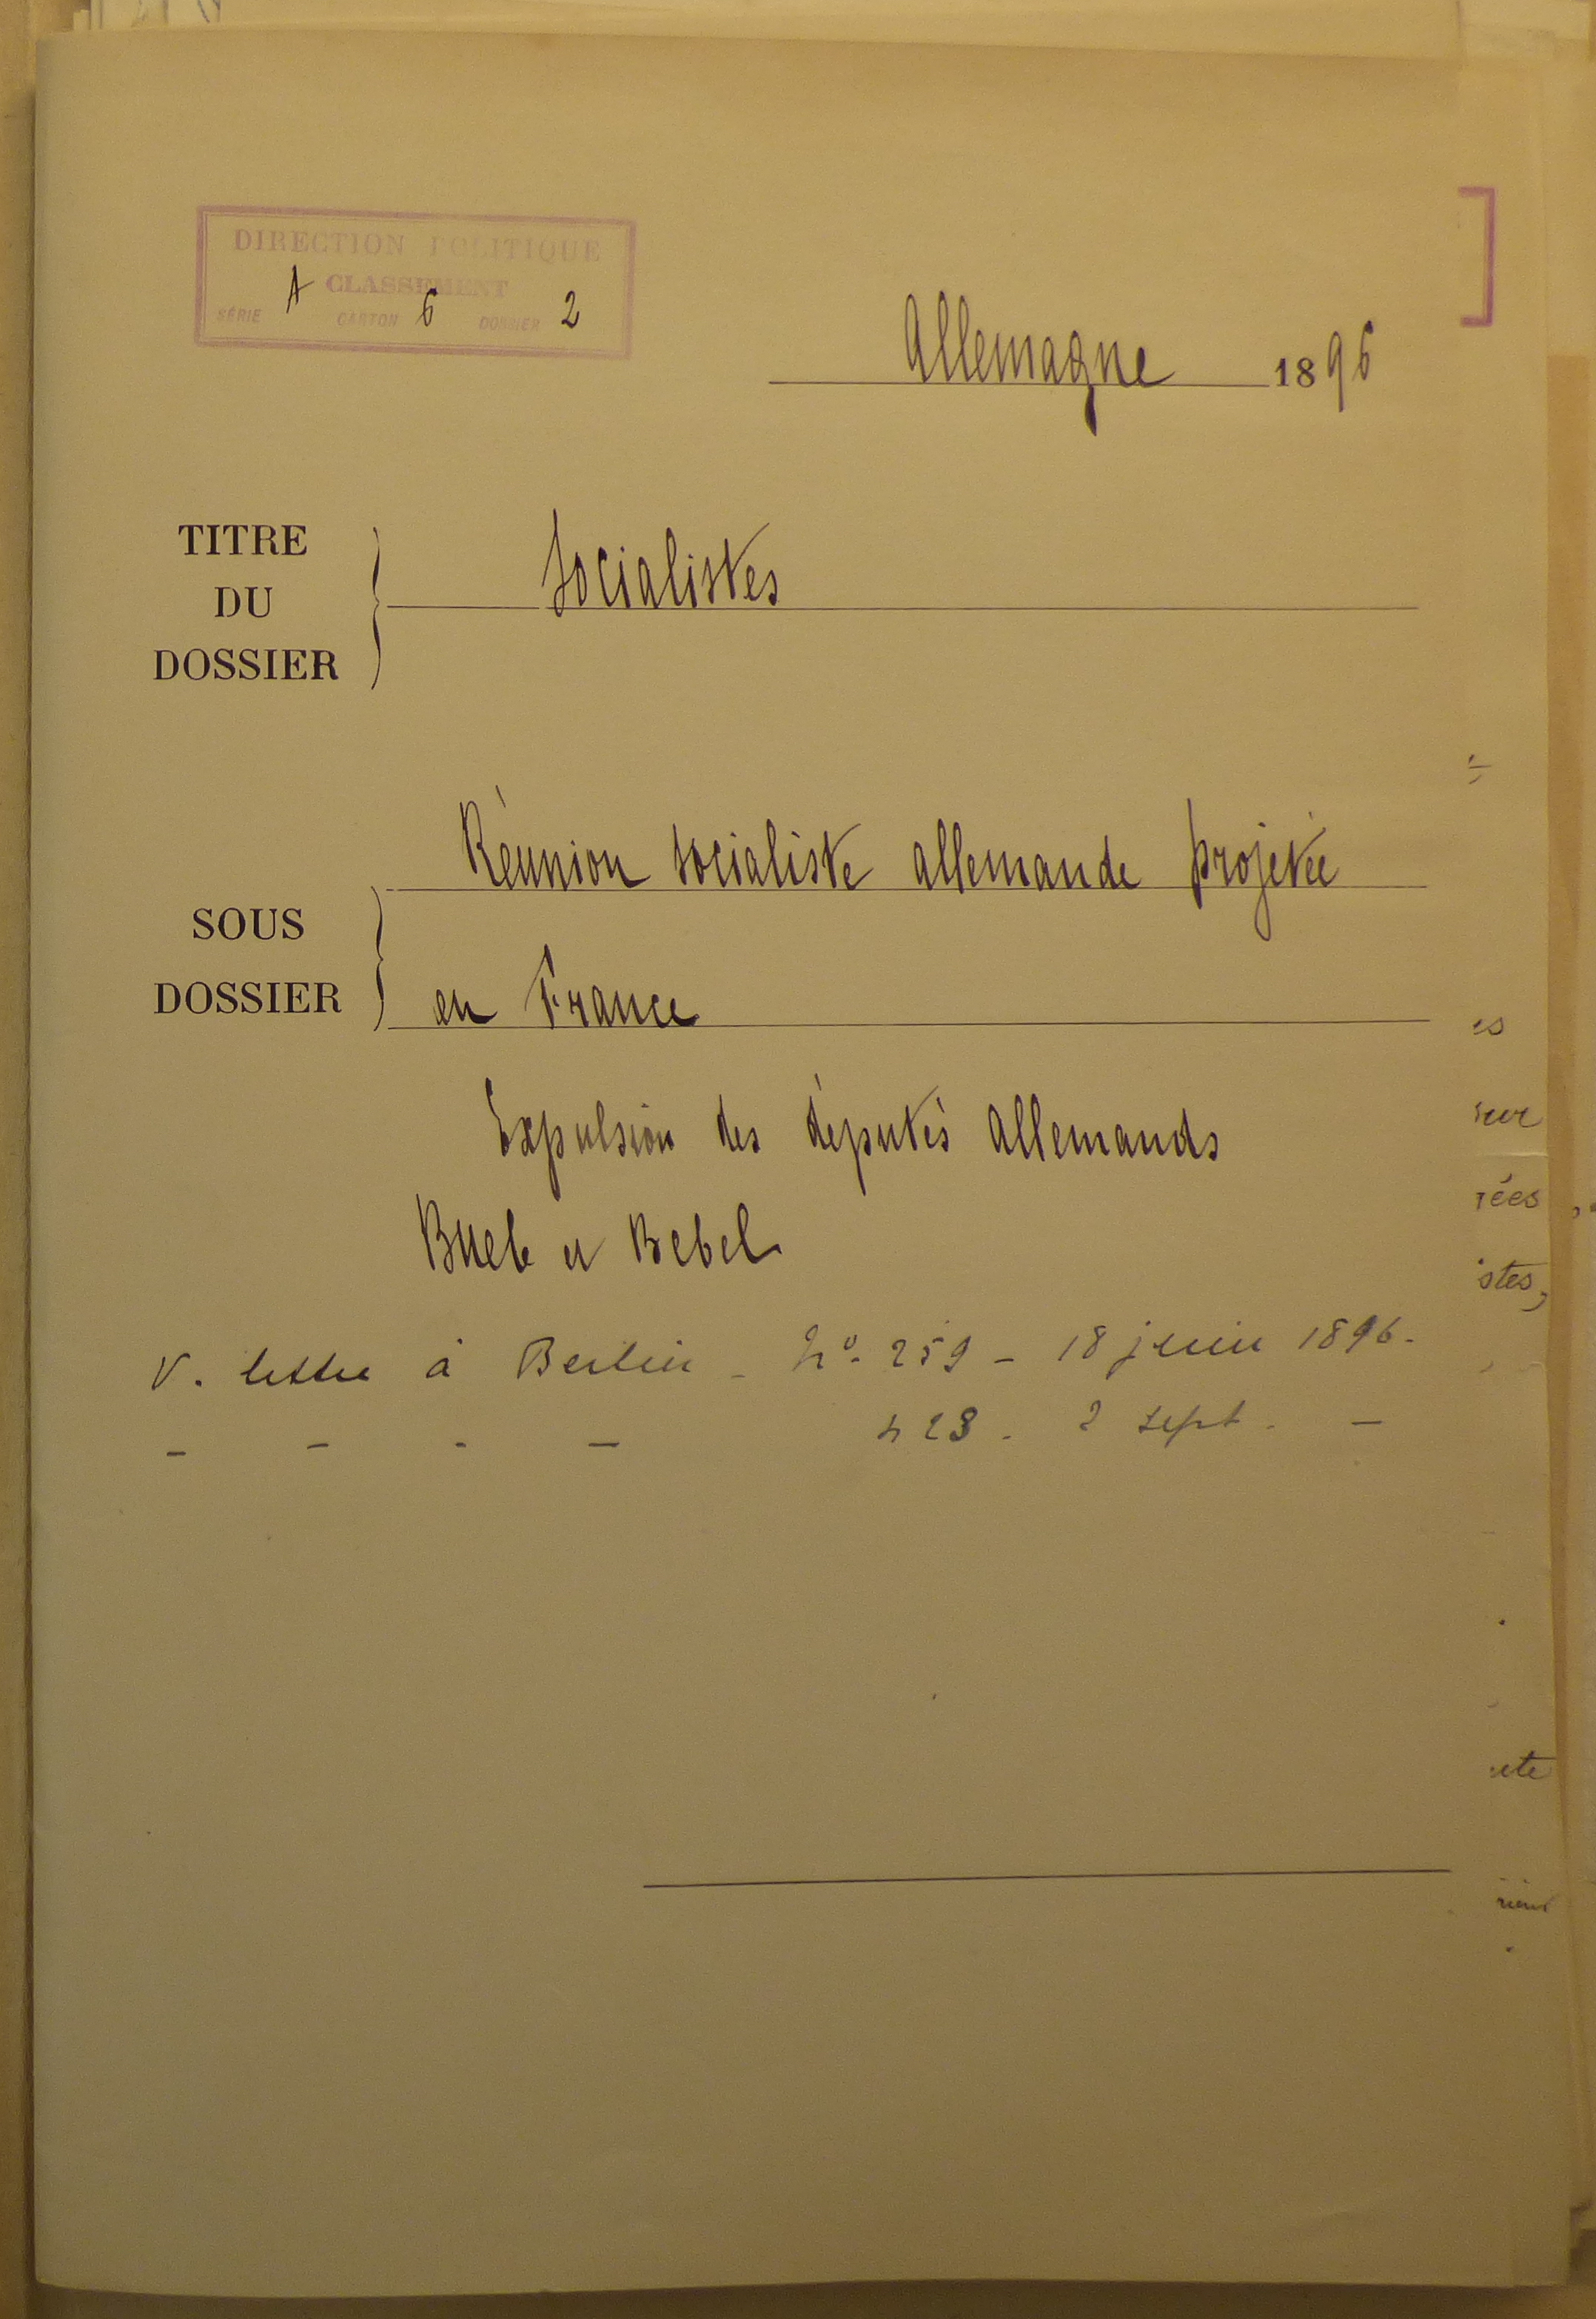 DIRECTION POLITIQUE
CLASSEMENT
SÉRIE A CARTON 6 DOSSIER 2
Allemagne 1896
TITRE
DU
DOSSIER
Socialistes
Réunion socialiste allemande projetée
SOUS
DOSSIER
en France
Expulsion des députés allemands
Bueb et Bebel
V. lettre à Berlin - No. 259 - 18 juin 1896.
- - - - 423. 2 sept. -
es
sur
rées
istes,